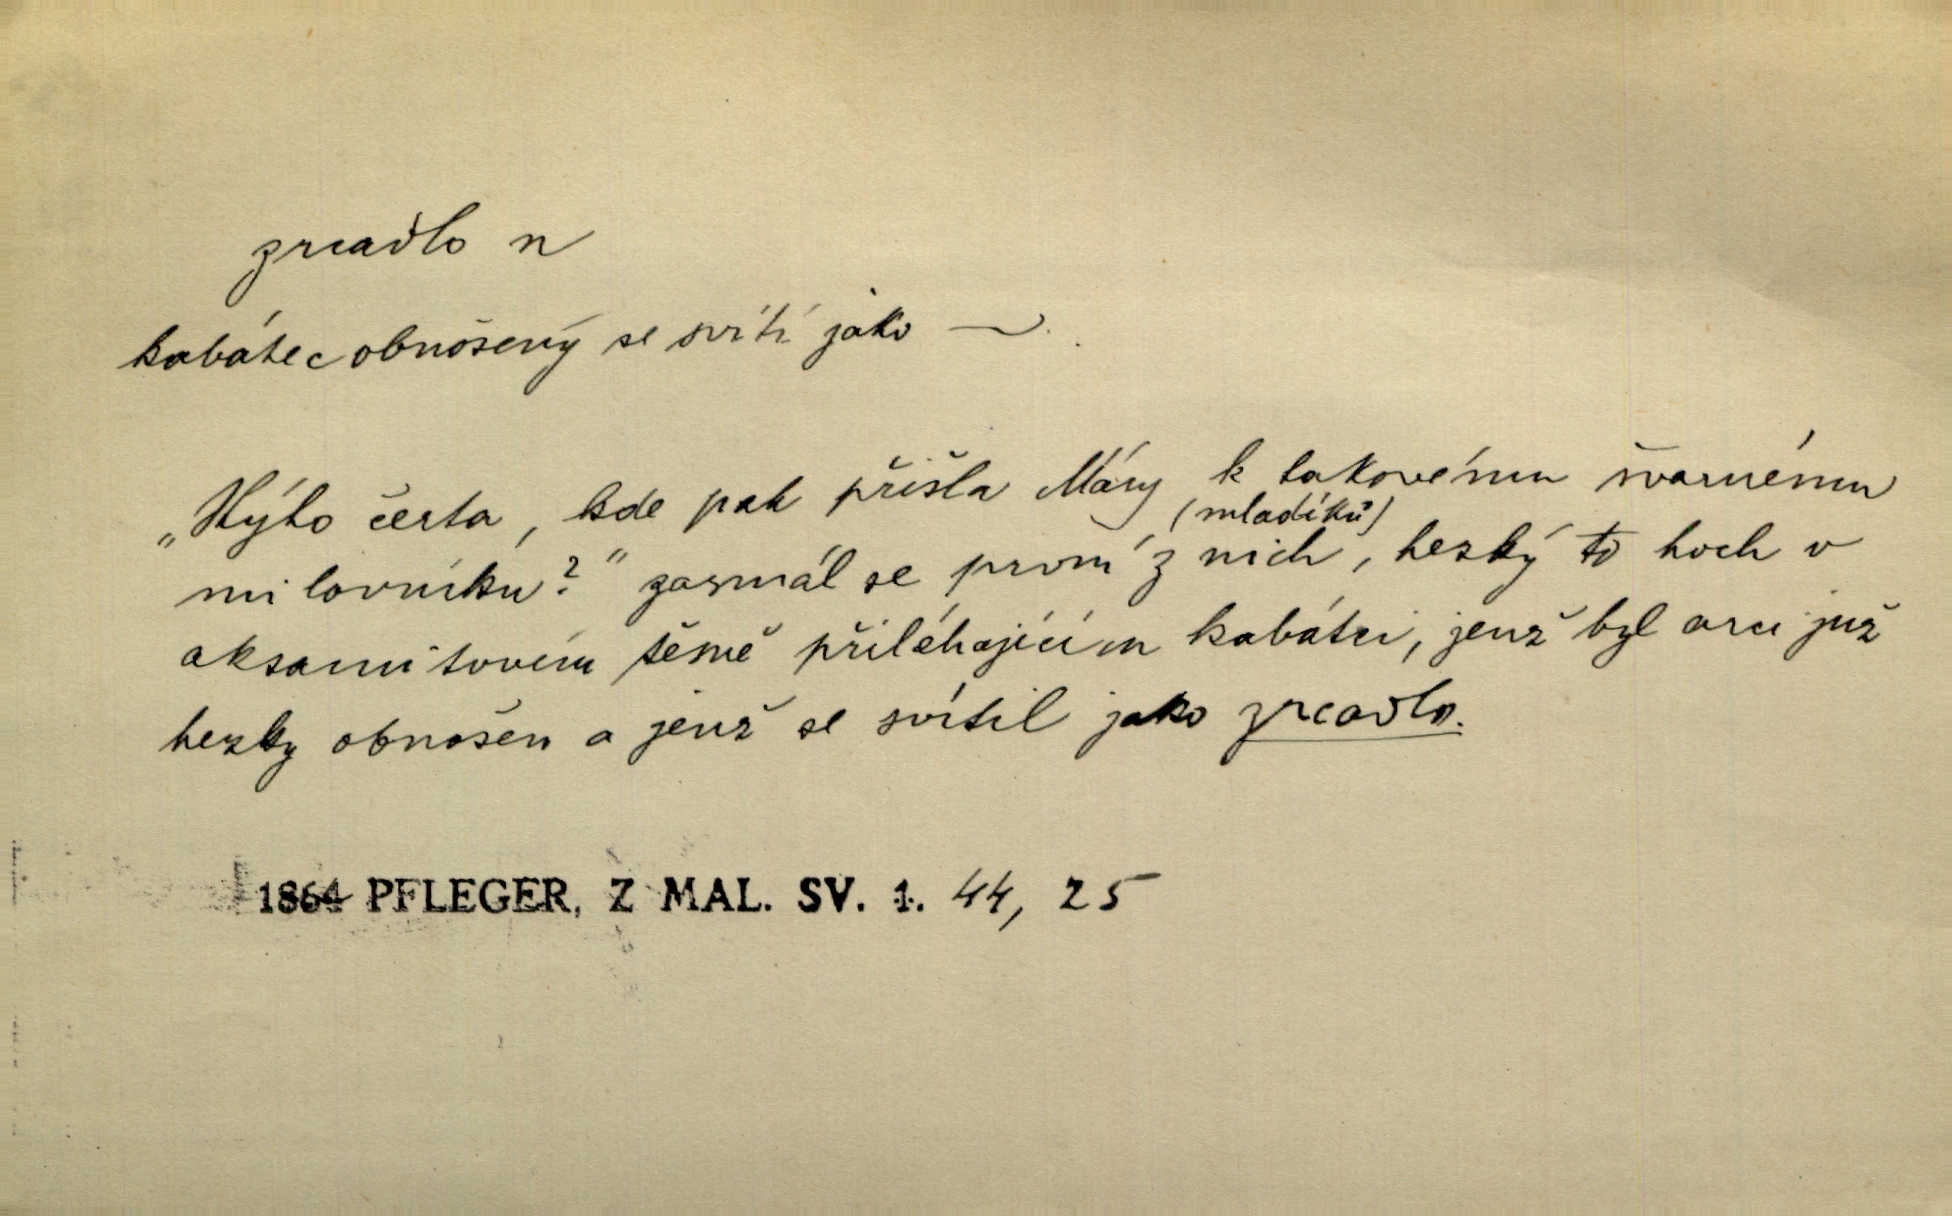 zrcadlo n
kabátec obnošený se svítí jako —
„Kýho čerta, kde pak přišla Máry k takovému švarnému
(mladíků)
milovníku?" zasmál se první z nich, hezký to hoch v
aksamitovém těsně přiléhajícím kabátci, jenž byl arci již
hezky obnošen a jenž se svítil jako zrcadlo.
1864 PFLEGER, Z MAL. SV. 1. 44, 25